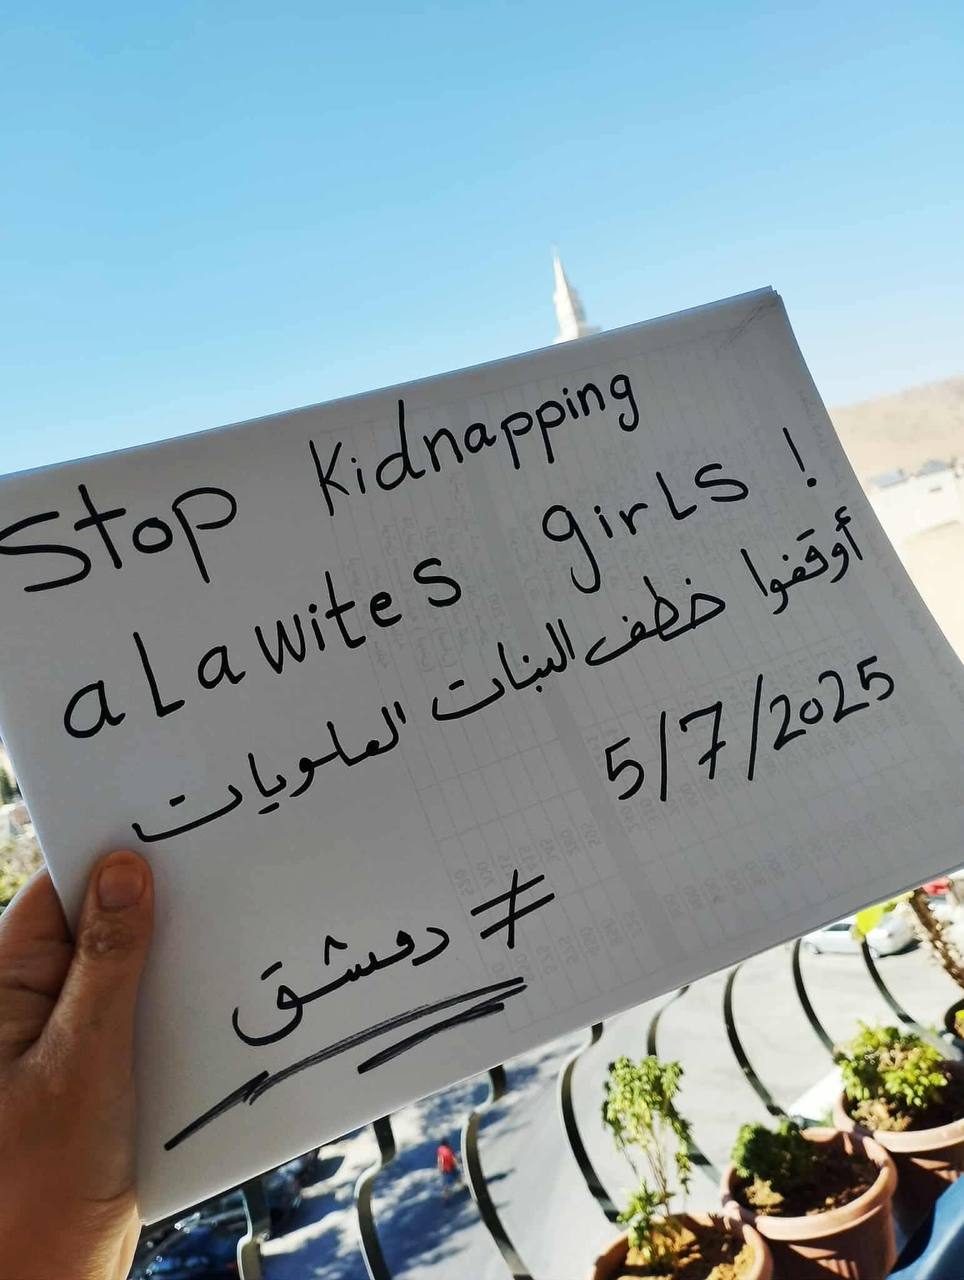 Stop Kidnapping
alawites girls !
أوقفوا خطف البنات العلويات
5/7/2025
#دمشق